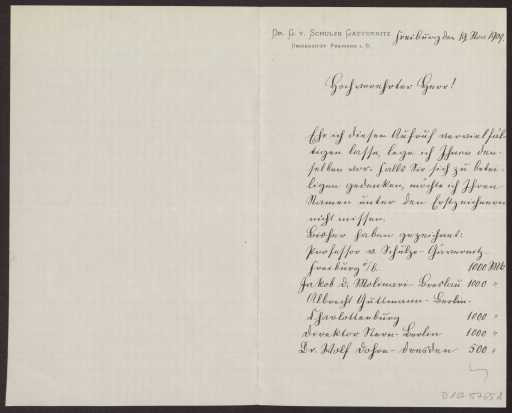 Dr. G. v. Schulze Gaevernitz
Universität Freiburg i. B.
Freiburg den 19. Nov. 1909.
Hochverehrter Herr!
Ehe ich diesen Aufruf vervielfäl-
tigen lasse, lege ich Ihnen den-
selben vor. Falls Sie sich zu betei-
ligen gedenken, möchte ich Ihren
Namen unter den Erstzeichnern
nicht missen.
Bisher haben gezeichnet:
Professor v. Schulze-Gävernitz
Freiburg i/b. 1000 Mk
Jakob d. Molinari-Breslau 1000 "
Albrecht Guttmann-Berlin-
Charlottenburg 1000 "
Direktor Stern-Berlin 1000 "
Dr. Wolf Dohrn-Dresden 500 "